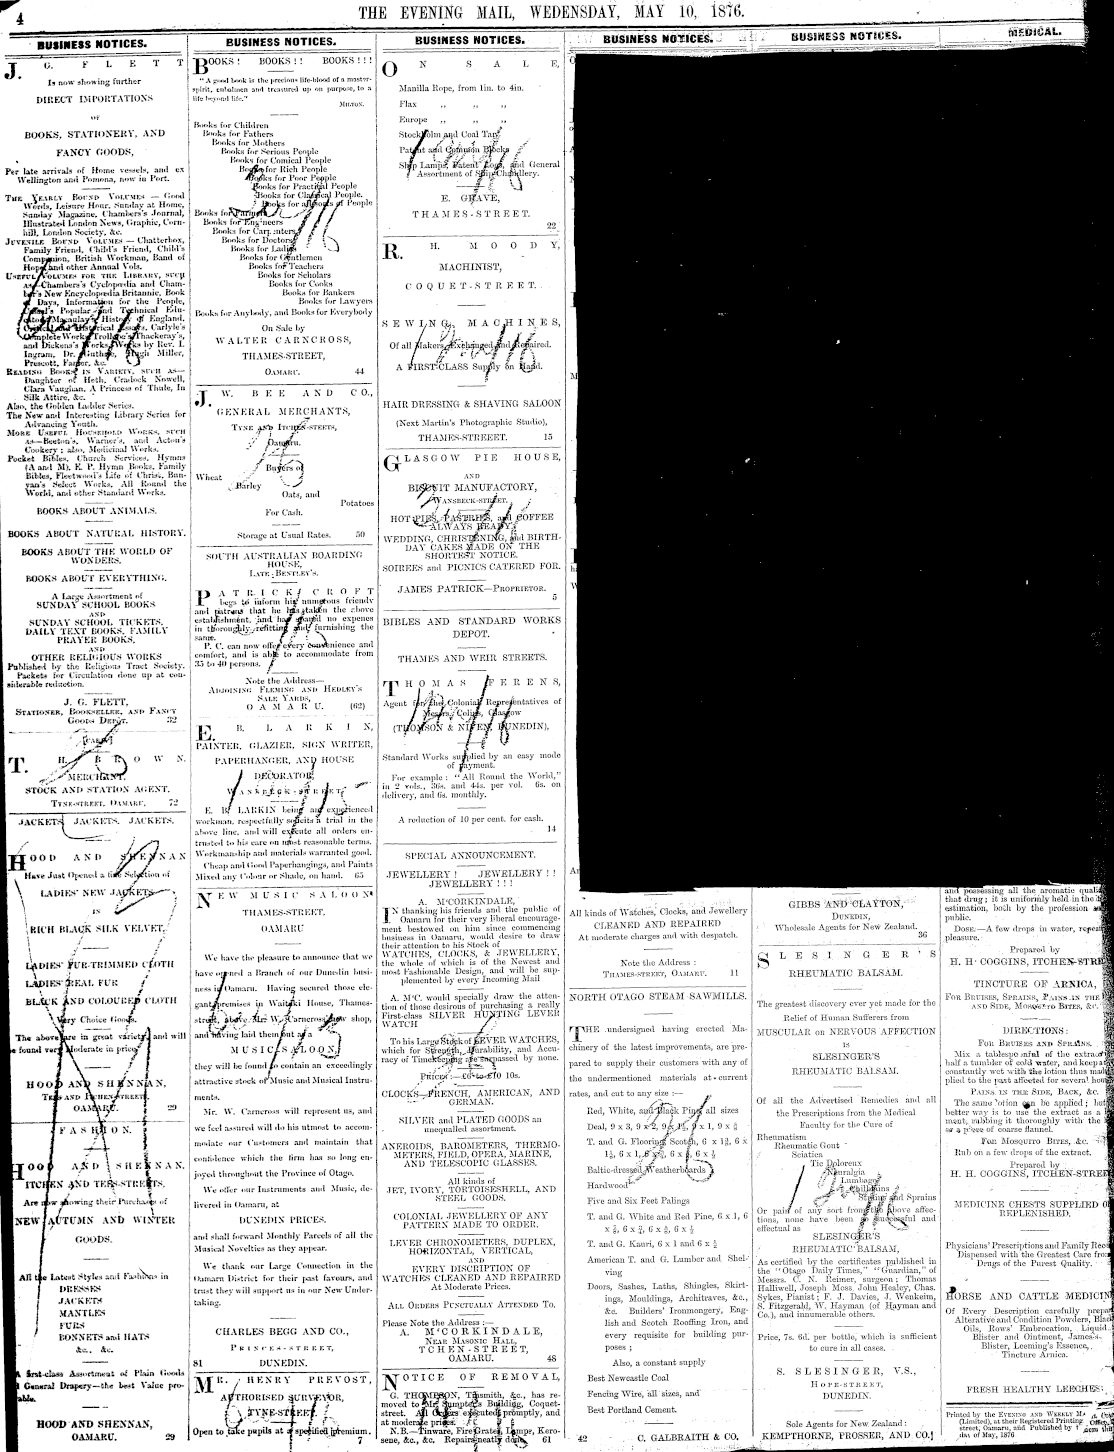 4
THE EVENING MAIL, WEDENSDAY, MAY 10, 1876.
BUSINESS NOTICES.
J. G. FLETT
Is now showing further
DIRECT IMPORTATIONS
OF
BOOKS, STATIONERY, AND
FANCY GOODS,
Per late arrivals of Home vessels, and ex
Wellington and Pomona, now in Port.
THE YEARLY BOUND VOLUMES — Good
Words, Leisure Hour, Sunday at Home,
Sunday Magazine, Chambers's Journal,
Illustrated London News, Graphic, Corn-
hill, London Society, &c.
JUVENILE BOUND VOLUMES — Chatterbox,
Family Friend, Child's Friend, Child's
Companion, British Workman, Band of
Hope, and other Annual Vols.
USEFUL VOLUMES FOR THE LIBRARY, SUCH
as Chambers's Cyclopædia and Cham-
ber's New Encyclopædia Britannic, Book
Days, Information for the People,
Popular and Technical Edu-
Macaulay's History of England,
Historical Essays, Carlyle's
Complete Works, Trollope's Thackeray's,
and Dickens's Works, Works by Rev. I.
Ingram, Dr. Guthrie, Hugh Miller,
Prescott, Farrar, &c.
READING BOOKS IN VARIETY, SUCH AS—
Daughter of Heth, Cradock Nowell,
Clara Vaughan, A Princess of Thule, In
Silk Attire, &c.
Also, the Golden Ladder Series.
The New and Interesting Library Series for
Advancing Youth.
MORE USEFUL HOUSEHOLD WORKS, SUCH
AS—Beeton's, Warner's, and Acton's
Cookery; also, Medicinal Works.
Pocket Bibles, Church Services, Hymns
(A and M), E. P. Hymn Books, Family
Bibles, Fleetwood's Life of Christ, Bun-
yan's Select Works, All Round the
World, and other Standard Works.
BOOKS ABOUT ANIMALS.
BOOKS ABOUT NATURAL HISTORY.
BOOKS ABOUT THE WORLD OF
WONDERS.
BOOKS ABOUT EVERYTHING.
A Large Assortment of
SUNDAY SCHOOL BOOKS
AND
SUNDAY SCHOOL TICKETS,
DAILY TEXT BOOKS, FAMILY
PRAYER BOOKS,
AND
OTHER RELIGIOUS WORKS
Published by the Religious Tract Society.
Packets for Circulation done up at con-
siderable reduction.
J. G. FLETT,
STATIONER, BOOKSELLER, AND FANCY
GOODS DEPÔT. 32
[CARD]
T. H. BROWN,
MERCHANT,
STOCK AND STATION AGENT,
TYNE-STREET, OAMARU. 72
JACKETS, JACKETS, JACKETS,
HOOD AND SHENNAN
Have Just Opened a fine Selection of
LADIES' NEW JACKETS
IN
RICH BLACK SILK VELVET,
LADIES' FUR-TRIMMED CLOTH
LADIES' REAL FUR
BLACK AND COLOURED CLOTH
Very Choice Goods.
The above are in great variety, and will
be found very Moderate in price.
HOOD AND SHENNAN,
TEES AND ITCHEN-STREETS,
OAMARU. 29
FASHION.
HOOD AND SHENNAN,
ITCHEN AND TEES-STREETS,
Are now showing their Purchases of
NEW AUTUMN AND WINTER
GOODS.
All the Latest Styles and Fashions in
DRESSES
JACKETS
MANTLES
FURS
BONNETS and HATS
&c., &c.
A first-class Assortment of Plain Goods
General Drapery—the best Value pro-
able.
HOOD AND SHENNAN,
OAMARU. 29
BUSINESS NOTICES.
BOOKS! BOOKS!! BOOKS!!!
"A good book is the precious life-blood of a master-
spirit, embalmen and treasured up on purpose, to a
life beyond life."
MILTON.
Books for Children
Books for Fathers
Books for Mothers
Books for Serious People
Books for Comical People
Books for Rich People
Books for Poor People
Books for Practical People
Books for Classical People.
Books for all sorts of People
Books for Farmers
Books for Engineers
Books for Carpenters
Books for Doctors
Books for Ladies
Books for Gentlemen
Books for Teachers
Books for Scholars
Books for Cooks
Books for Bankers
Books for Lawyers
Books for Anybody, and Books for Everybody
On Sale by
WALTER CARNCROSS,
THAMES-STREET,
OAMARU. 44
J. W. BEE AND CO.,
GENERAL MERCHANTS,
TYNE AND ITCHEN-STEETS,
Oamaru.
Buyers of
Wheat
Barley
Oats, and
Potatoes
For Cash.
Storage at Usual Rates. 50
SOUTH AUSTRALIAN BOARDING
HOUSE,
LATE BENTLEY'S.
PATRICK CROFT
begs to inform his numerous friendv
and patrons that he has taken the above
establishment, and has spared no expenes
in thoroughly refitting and furnishing the
same.
P. C. can now offer every convenience and
comfort, and is able to accommodate from
35 to 40 persons.
Note the Address—
ADJOINING FLEMING AND HEDLEY'S
SALE YARDS,
OAMARU. (62)
E. B. LARKIN,
PAINTER, GLAZIER, SIGN WRITER,
PAPERHANGER, AND HOUSE
DECORATOR,
WANSBECK-STREET,
E. B. LARKIN being an experienced
workman, respectfully solicits a trial in the
above line, and will execute all orders en-
trusted to his care on most reasonable terms.
Workmanship and materials warranted good.
Cheap and Good Paperhangings, and Paints
Mixed any Colour or Shade, on hand. 65
NEW MUSIC SALOON
THAMES-STREET,
OAMARU
We have the pleasure to announce that we
have opened a Branch of our Dunedin busi-
ness in Oamaru. Having secured those ele-
gant premises in Waitaki House, Thames-
street, above Mr. W. Carncross' new shop,
and having laid them out as a
MUSIC SALOON,
they will be found to contain an exceedingly
attractive stock of Music and Musical Instru-
ments.
Mr. W. Carncross will represent us, and
we feel assured will do his utmost to accom-
modate our Customers and maintain that
confidence which the firm has so long en-
joyed throughout the Province of Otago.
We offer our Instruments and Music, de-
livered in Oamaru, at
DUNEDIN PRICES.
and shall forward Monthly Parcels of all the
Musical Novelties as they appear.
We thank our Large Connection in the
Oamaru District for their past favours, and
trust they will support us in our New Under-
taking.
CHARLES BEGG AND CO.,
PRINCES-STREET,
81 DUNEDIN.
MR. HENRY PREVOST,
AUTHORISED SURVEYOR,
TYNE-STREET.
Open to take pupils at a specified premium.
7
BUSINESS NOTICES.
ON SALE,
Manilla Rope, from 1in. to 4in.
Flax ,, ,, ,,
Europe ,, ,, ,,
Stockholm and Coal Tar
Patent and Common Blocks
Ship Lamps, Patent Logs, and General
Assortment of Ship Chandlery.
E. GRAVE,
THAMES-STREET.
22
R. H. MOODY,
MACHINIST,
COQUET-STREET.
SEWING MACHINES,
Of all Makers, Exchanged and Repaired.
A FIRST-CLASS Supply on Hand.
HAIR DRESSING & SHAVING SALOON
(Next Martin's Photographic Studio),
THAMES-STREEET. 15
GLASGOW PIE HOUSE,
AND
BISCUIT MANUFACTORY,
WANSBECK-STREET.
HOT PIES, PASTRIES, and COFFEE
ALWAYS READY.
WEDDING, CHRISTENING, and BIRTH-
DAY CAKES MADE ON THE
SHORTEST NOTICE.
SOIREES and PICNICS CATERED FOR.
JAMES PATRICK—PROPRIETOR.
5
BIBLES AND STANDARD WORKS
DEPOT.
THAMES AND WEIR STREETS.
THOMAS FERENS,
Agent for the Colonial Representatives of
Messrs. Collins, Glasgow
(THOMSON & NIVEN, DUNEDIN),
Standard Works supplied by an easy mode
of payment.
For example: "All Round the World,"
in 2 vols., 36s. and 44s. per vol. 6s. on
delivery, and 6s. monthly.
A reduction of 10 per cent. for cash.
14
SPECIAL ANNOUNCEMENT.
JEWELLERY! JEWELLERY!!
JEWELLERY!!!
A. M'CORKINDALE,
IN thanking his friends and the public of
Oamaru for their very liberal encourage-
ment bestowed on him since commencing
business in Oamaru, would desire to draw
their attention to his Stock of
WATCHES, CLOCKS, & JEWELLERY,
the whole of which is of the Newest and
most Fashionable Design, and will be sup-
plemented by every Incoming Mail
A. M'C. would specially draw the atten-
tion of those desirous of purchasing a really
First-class SILVER HUNTING LEVER
WATCH
To his Large Stock of LEVER WATCHES,
which for Strength, Durability, and Accu-
racy of Timekeeping are surpassed by none.
Prices:—£6 to £10 10s.
CLOCKS—FRENCH, AMERICAN, AND
GERMAN.
SILVER and PLATED GOODS an
unequalled assortment.
ANEROIDS, BAROMETERS, THERMO-
METERS, FIELD, OPERA, MARINE,
AND TELESCOPIC GLASSES.
All kinds of
JET, IVORY, TORTOISESHELL, AND
STEEL GOODS.
COLONIAL JEWELLERY OF ANY
PATTERN MADE TO ORDER.
LEVER CHRONOMETERS, DUPLEX,
HORIZONTAL, VERTICAL,
AND
EVERY DISCRIPTION OF
WATCHES CLEANED AND REPAIRED
At Moderate Prices.
ALL ORDERS PUNCTUALLY ATTENDED TO.
Please Note the Address:—
A. M'CORKINDALE,
NEAR MASONIC HALL,
TCHEN-STREET,
OAMARU. 48
NOTICE OF REMOVAL,
G. THOMPSON, Tinsmith, &c., has re-
moved to Mr. Sumpter's Building, Coquet-
street. All Orders executed promptly, and
at moderate prices.
N.B.—Tinware, Fire Grates, Lamps, Kero-
sene, &c., &c. Repairs neatly done. 61
BUSINESS NOTICES.
All kinds of Watches, Clocks, and Jewellery
CLEANED AND REPAIRED
At moderate charges and with despatch.
Note the Address:
THAMES-STREET, OAMARU. 11
NORTH OTAGO STEAM SAWMILLS.
THE undersigned having erected Ma-
chinery of the latest improvements, are pre-
pared to supply their customers with any of
the undermentioned materials at current
rates, and cut to any size:—
Red, White, and Black Pine, all sizes
Deal, 9 x 3, 9 x 2,
T. and G. Flooring, Scotch,
Baltic-dressed Weatherboards
Hardwood
Five and Six Feet Palings
T. and G. White and Red Pine, 6 x 1, 6
T. and G. Kauri, 6 x 1 and 6 x
American T. and G. Lumber and Shel-
ving
Doors, Sashes, Laths, Shingles, Skirt-
ings, Mouldings, Architraves, &c.,
&c. Builders' Ironmongery, Eng-
lish and Scotch Roofling Iron, and
every requisite for building pur-
poses;
Also, a constant supply
Best Newcastle Coal
Fencing Wire, all sizes, and
Best Portland Cement.
42 C. GALBRAITH & CO.
BUSINESS NOTICES.
GIBBS AND CLAYTON,
DUNEDIN,
Wholesale Agents for New Zealand.
36
SLESINGER'S
RHEUMATIC BALSAM.
The greatest discovery ever yet made for the
Relief of Human Sufferers from
MUSCULAR or NERVOUS AFFECTION
IS
SLESINGER'S
RHEUMATIC BALSAM.
Of all the Advertised Remedies and all
the Prescriptions from the Medical
Faculty for the Cure of
Rheumatism
Rheumatic Gout
Sciatica
Tic Doloreux
Neuralgia
Lumbago
Chilblains
Strains and Sprains
Or pains of any sort from the above affec-
tions, none have been so successful and
effectual as
SLESINGER'S
RHEUMATIC BALSAM,
As certified by the certificates published in
the "Otago Daily Times," "Guardian," of
Messrs. C. N. Reimer, surgeon; Thomas
Halliwell, Joseph Moss, John Healey, Chas.
Sykes, Pianist; F. J. Davies, J. Wenkeim,
S. Fitzgerald, W. Hayman (of Hayman and
Co.), and innumerable others.
Price, 7s. 6d. per bottle, which is sufficient
to cure in all cases.
S. SLESINGER, V.S.,
HOPE-STREET,
DUNEDIN.
Sole Agents for New Zealand:
KEMPTHORNE, PROSSER, AND CO.
MEDICAL.
and possessing all the aromatic
that drug; it is uniformly held in the
estimation, both by the profession
public.
DOSE—A few drops in water,
pleasure.
Prepared by
H. H. COGGINS, ITCHEN-STRE
TINCTURE OF ARNICA,
FOR BRUISES, SPRAINS, PAINS IN THE
AND SIDE, MOSQUITO BITES, &c.
DIRECTIONS:
FOR BRUISES AND SPRAINS.
Mix a tablespoonful of the extract
half a tumbler of cold water, and keep
constantly wet with the lotion thus
plied to the past affected for several
PAINS IN THE SIDE, BACK, &c.
The same lotion can be applied; but
better way is to use the extract as a
ment, rubbing it thoroughly with the
or a piece of coarse flannel.
FOR MOSQUITO BITES, &c.
Rub on a few drops of the extract.
Prepared by
H. H. COGGINS, ITCHEN-STREE
MEDICINE CHESTS SUPPLIED O
REPLENISHED.
Physicians' Prescriptions and Family
Dispensed with the Greatest Care
Drugs of the Purest Quality.
HORSE AND CATTLE MEDICIN
Of Every Description carefully
Alterative and Condition Powders,
Oils, Rows' Embrocation, Liquid
Blister and Ointment, James's
Blister, Leeming's Essence,
Tincture Arnica.
FRESH HEALTHY LEECHES
Printed by the EVENING AND WEEKLY
(Limited), at their Registered Printing
street, Oamaru, and Published by
day of May, 1876